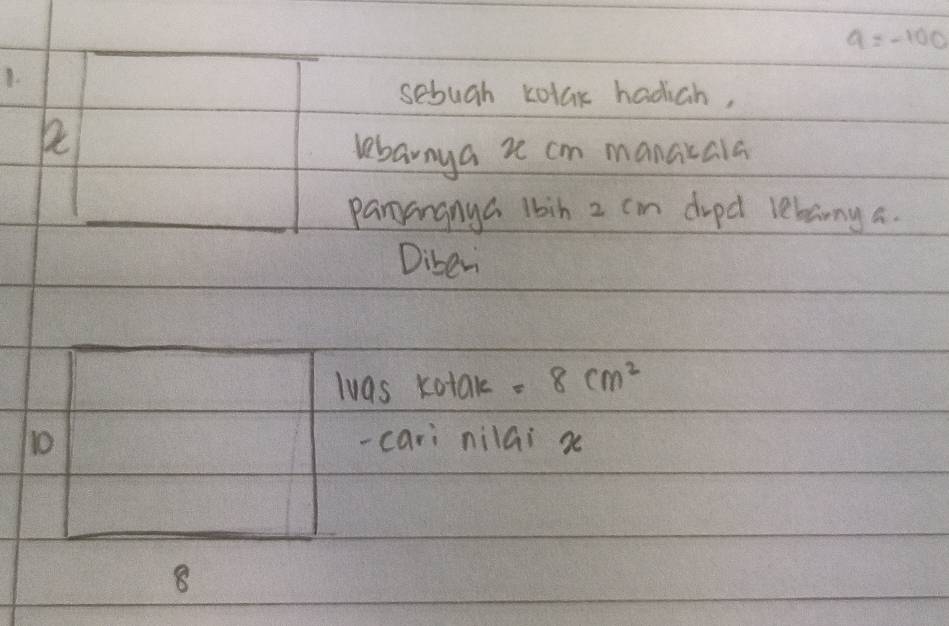 a = -100
1.
sebuah kotak hadiah,
x
lebarnya x cm manakala
panjangnya lbih 2 cm drpd lebarnya.
Diberi
luas kotak = 8 cm²
10
-cari nilai x
8